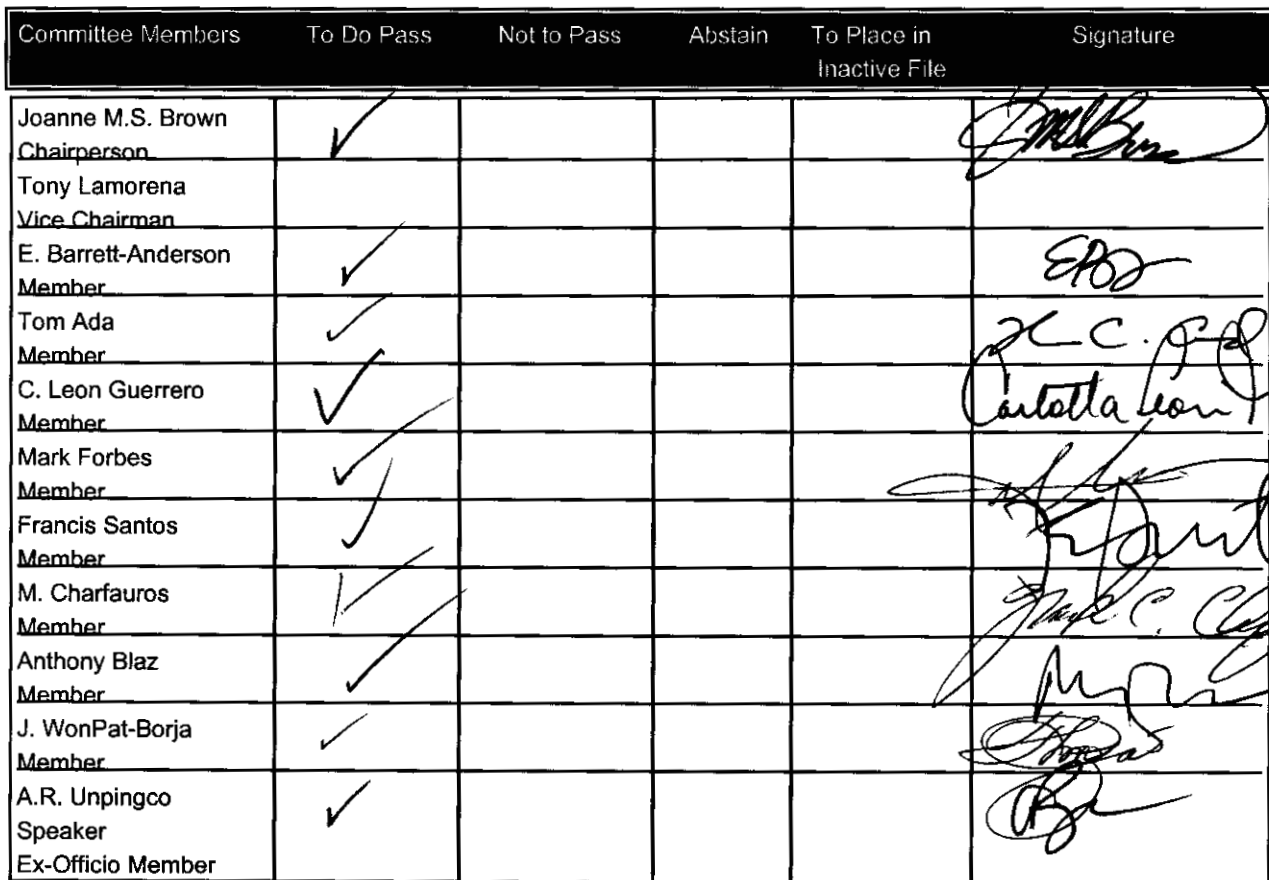 Committee Members To Do Pass Not to Pass Abstain To Place in Signature
Inactive File
Joanne M.S. Brown
Chairperson
Tony Lamorena
Vice Chairman
E. Barrett-Anderson
Member
Tom Ada
Member
C. Leon Guerrero
Member
Carlotta Leon
Mark Forbes
Member
Francis Santos
Member
M. Charfauros
Member
Anthony Blaz
Member
J. WonPat-Borja
Member
A.R. Unpingco
Speaker
Ex-Officio Member